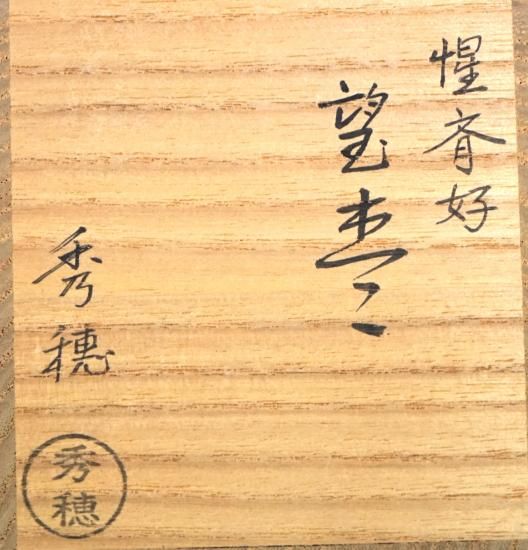 惺斎好
望棗
秀穂
秀穂